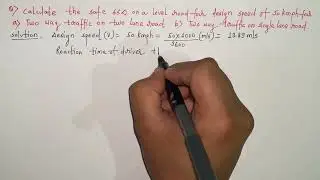 Q) Calculate the safe SSD on a level road for design speed of 50 kmph for
a) Two way traffic on two lane road b) Two way traffic on single lane road
solution Design speed (V) = 50 kmph = 50×1000/3600 (m/s) = 13.89 m/s
Reaction time of driver t